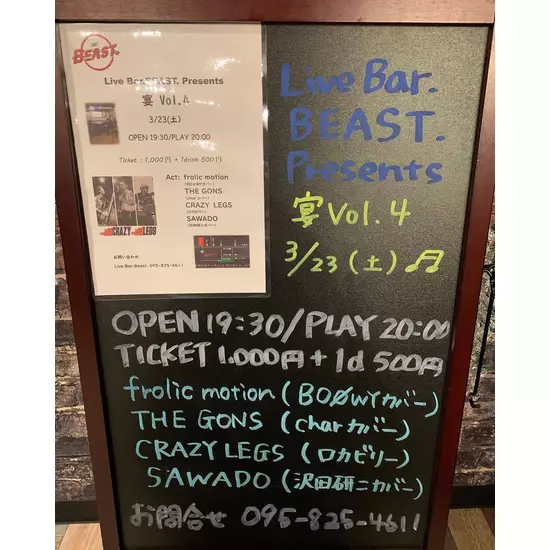 BEAST.
Live Bar.BEAST. Presents
宴 Vol.4
3/23(土)
OPEN 19:30/PLAY 20:00
Ticket : 1,000円 + 1drink 500円
Act: frolic motion
THE GONS
CRAZY LEGS
SAWADO
CRAZY LEGS
お問い合わせ
Live Bar.Beast. 095-825-4611
Live Bar.
BEAST.
Presents
宴 Vol.4
3/23(土)♫
OPEN 19:30/PLAY 20:00
TICKET 1.000円+1d 500円
frolic motion (BOØWYカバー)
THE GONS (charカバー)
CRAZY LEGS (ロカビリー)
SAWADO (沢田研二カバー)
お問合せ 095-825-4611